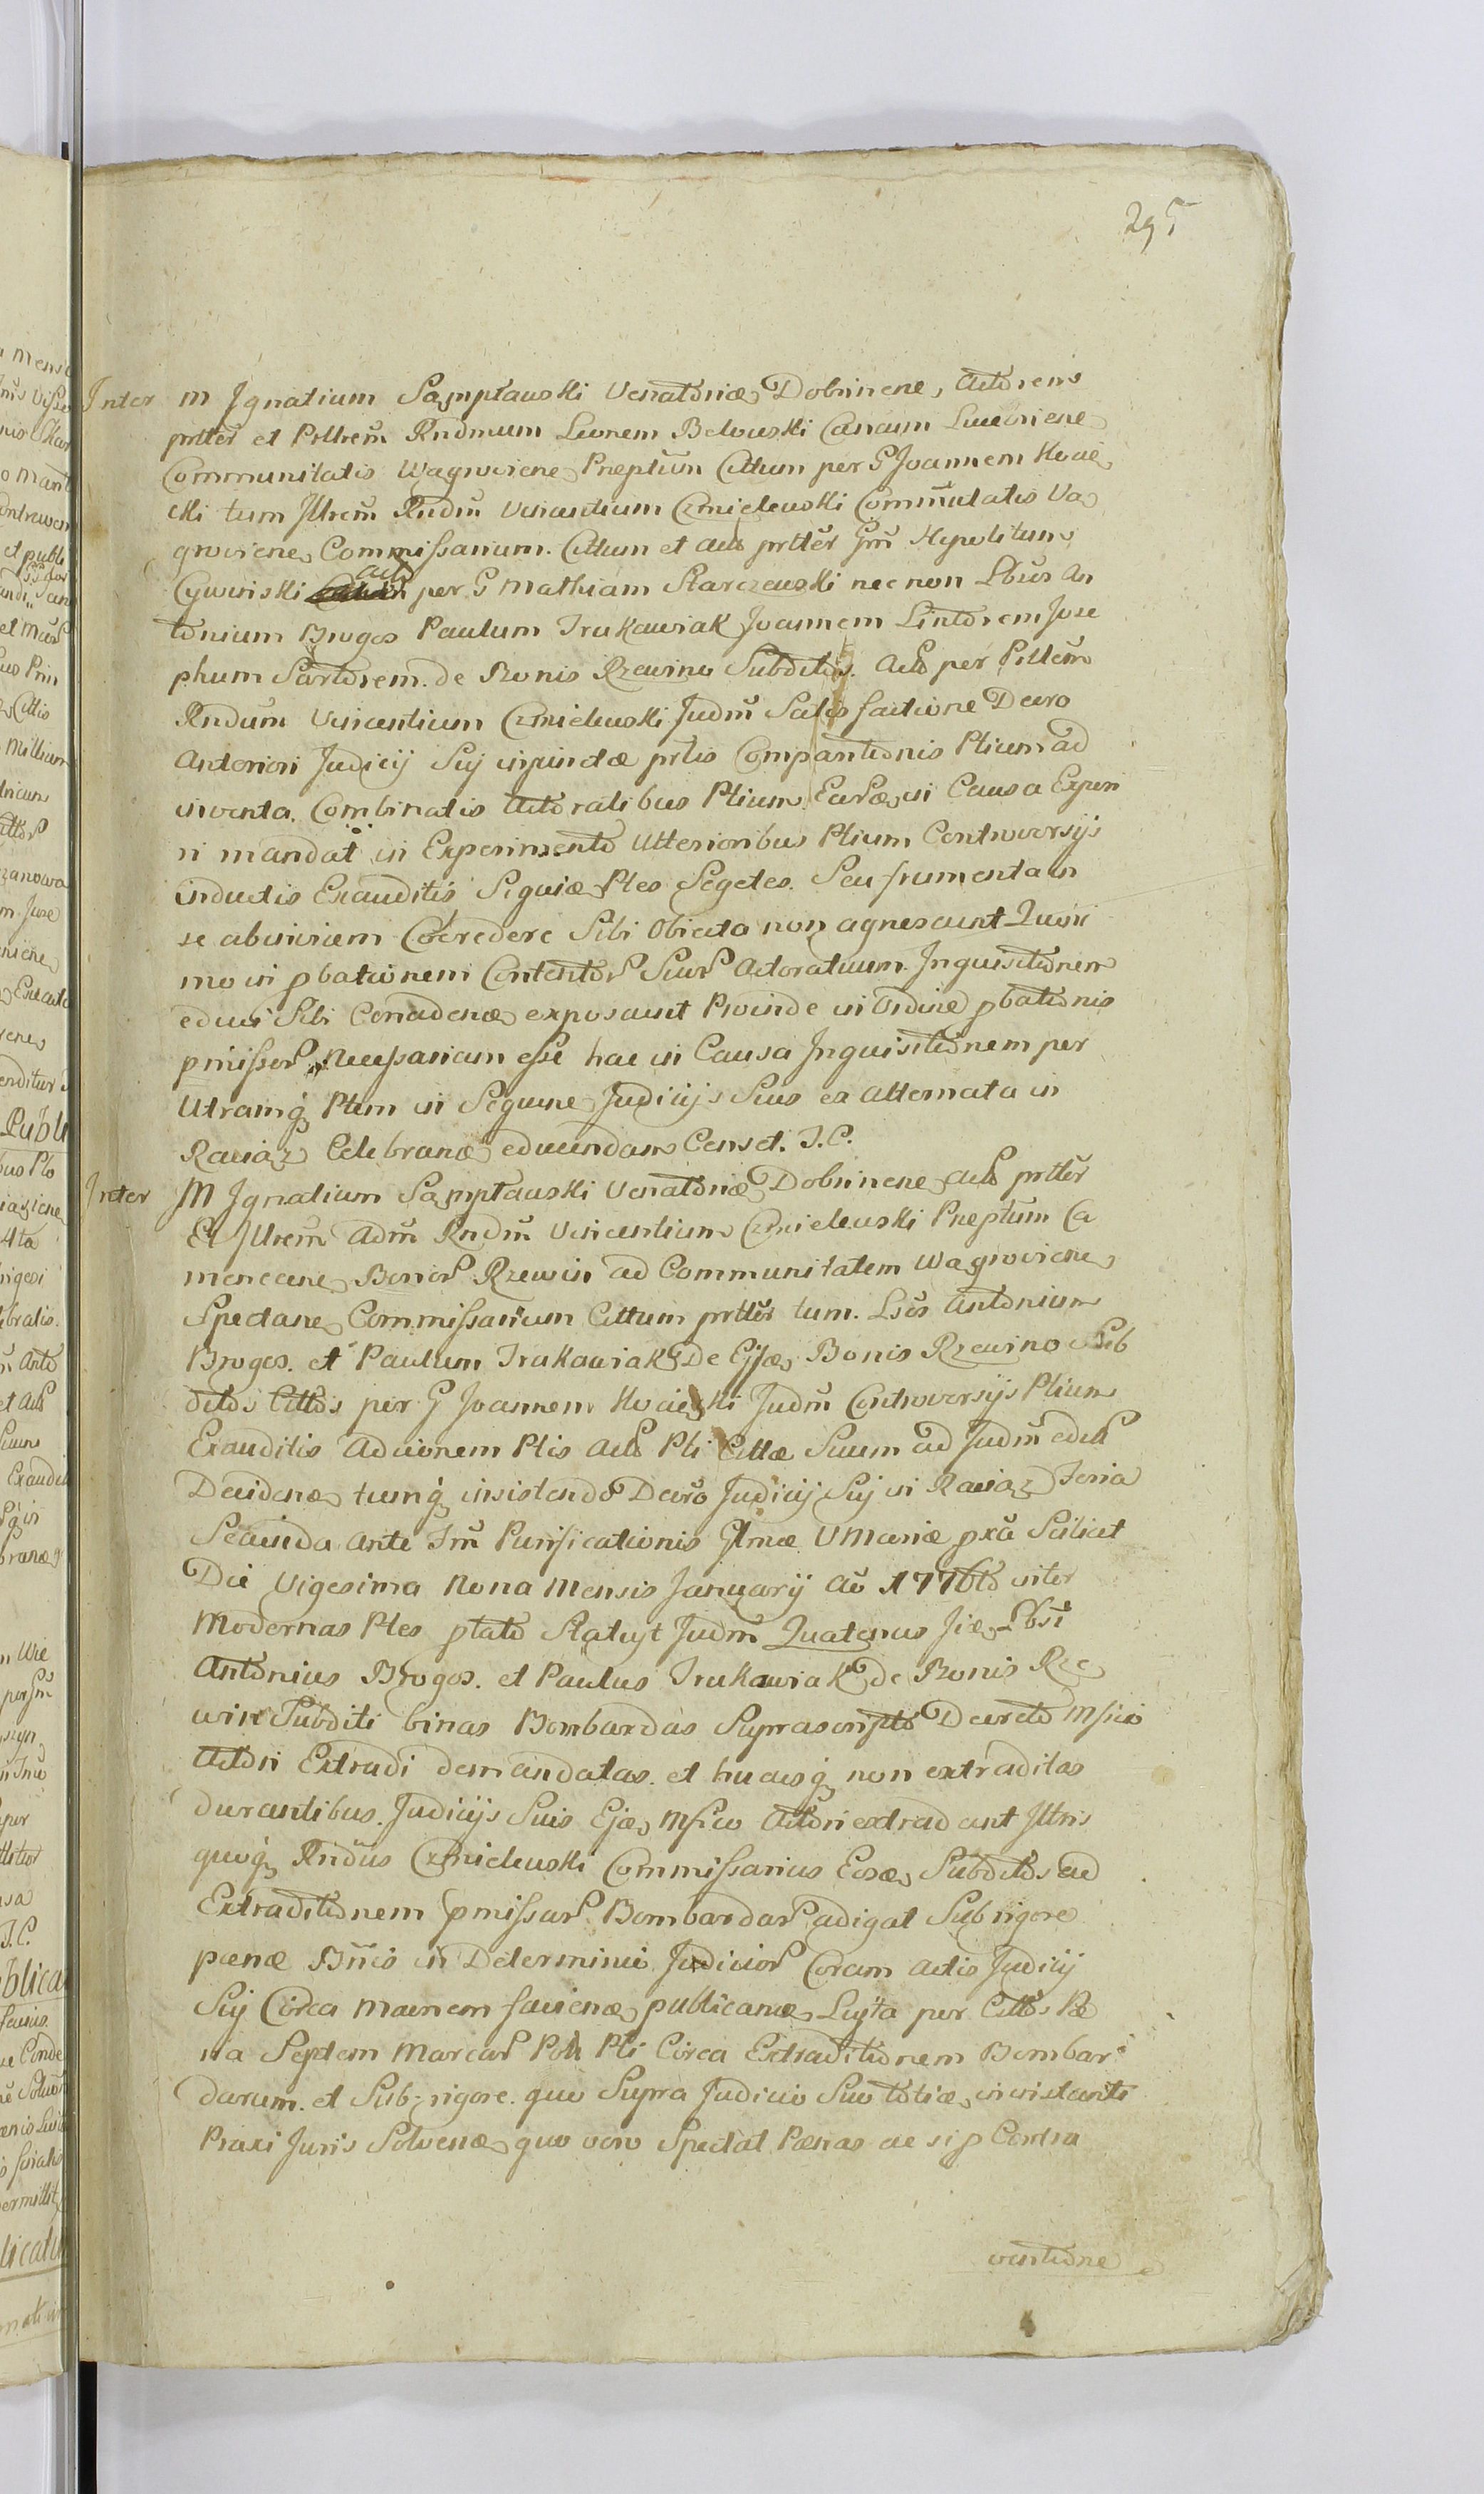 295
Inter M Ignatium Sąmpławski Venatoriæ Dobrinene, Actorem
prtter et Pilltrem Rndmum Leonem Belowski Cancum Luceoriene
Communitatis Wagroviene Præptum Cittum per G Joannem Kwie
cki tum Jlltrem Rndm Vincentium Czmielewski Commutatis Va
groviene Commissarium. Cittum et Acts prtter Grm Hypolitum
Cywinski Acts per G Mathiam Skarczewski nec non Lbus An
tonium Brogos Paulum Trukawiak Joannem Lintorem Jose
phum Sartorem. de Bonis Rzewino Subditos. Acts per Pilltrem
Rndum Vincentium Czmielewski Judm Satis factione Decro
Anteriori Judicij Sij injunctæ prtis Comparitionis Ptium ad
inventa. Combinatis Actoratibus Ptium. Earæ in Causa Experi
ri mandat in Experimento Ulterioribus Ptium Controversijs
inductis Exauditis Siquiæ Ptes Segetes. Seu frumenta in
se abinviem Coeredere Sibi Obiecta non agnescunt Quini
mo in pbationem Contentor Suor Actoratuum. Inquisitionem
educi Sibi Concadenæ exposcunt Proinde in Ordine pbationis
pmissor Necessariam esse hac in Causa Inquisitionem per
Utramq Ptem in Seqvene Judicijs Suis ex Alternata in
Raciąz Celebranæ educendam Censet. J. C.
Inter M Ignatium Sąmpławski Venatoriæ Dobrinene Acts prtter
Et Jlltrem Adm Rndm Vincentium Czmielewski Præptum Ca
menecene Bonor Rzewin ad Communitatem Wagroviene
Spectane Commissarium Cittum prtter tum. Lbos Antonium
Brogos. et Paulum Trukawiak De Ejsæ Bonis Rzewino Sub
ditos Cittos per G Joannem Kwiecki Judm Controversijs Ptium
Exauditis Adcionem Ptis Acts Pti Cittæ Suum ad Judm edits
Decidenæ tumq insistendo Decro Judicij Sij in Raciąz Feria
Secunda Ante Frm Purificationis Glmæ V Mariæ pxa Scilicet
Die Vigesima Nona Mensis Januarij Ao 1776to inter
Modernas Ptes plato Statuyt Judm Quatenus Jiæ Lbsi
Antonius Brogos. et Paulus Trukawiak de Bonis Rze
win Subditi binas Bombardas Suprascripto Decreto Msico
Actori Extradi demandatas. et hucusq non extraditas
durantibus. Judicijs Suis Ejæ Msico Actori extradant Jlltris
quoq Rndus Czmielewski Commissarius Eosæ Subditos ad
Extraditionem pmissar Bombardar adigat Sub rigore
pœnæ Bnis in Determinio Judicior Coram Actis Judicij
Sij Circa Manem faciene publicanæ Lujta per Cittos Pæ
na Septem Marcar Poli Pti Circa Extraditionem Bombar
darum. et Sub rigore. quo Supra Judicio Suo totiæ in instanti
Praxi Juris Solvenæ quo vero Spectat Pœnas ac si p Contra
ventione